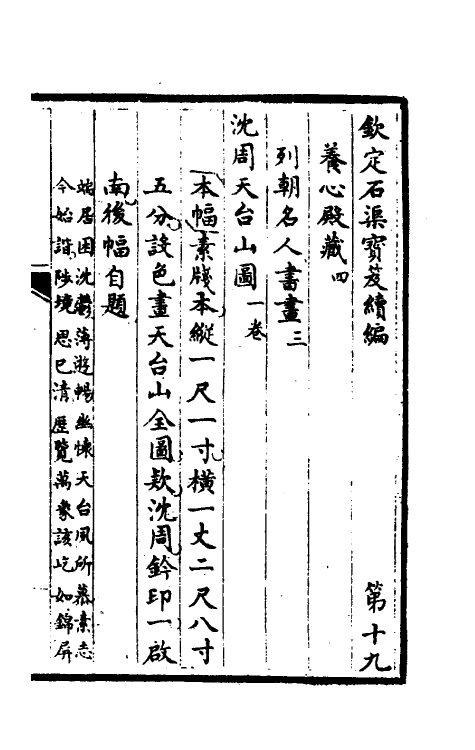 欽定石渠寶笈續編　第十九
養心殿藏四
列朝名人書畫三
沈周天台山圖一卷
本幅素牋本縱一尺一寸橫一丈二尺八寸
五分設色畫天台山全圖款沈周鈐印一啟
南後幅自題
端居困沈鬱薄游暢幽悚天台夙所慕素志
今始諧陟境思已清歷覽萬象該屹如錦屏